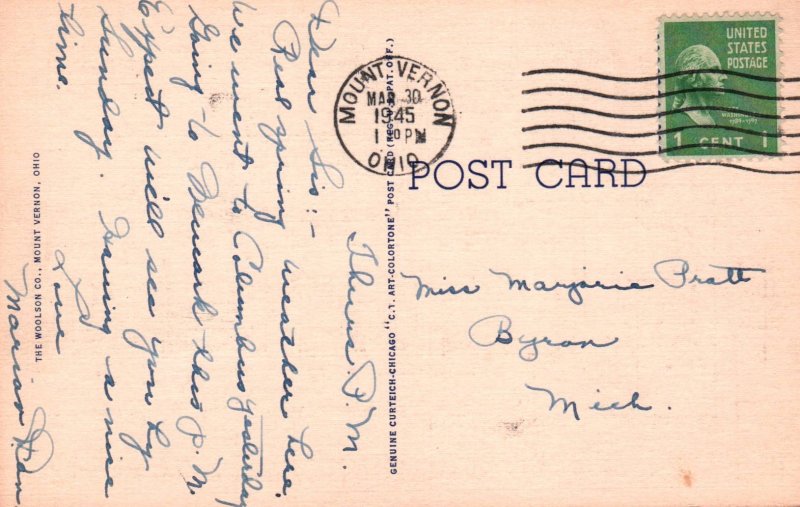 Thurs. P.M.
Dear Sis:-
Real spring weather here.
We went to Columbus yesterday
Going to Newark this P.M.
Expect we'll see you by
Sunday. Having a nice
time.
Love
Marion
THE WOOLSON CO., MOUNT VERNON, OHIO
GENUINE CURTEICH-CHICAGO "C.T. ART-COLORTONE" POST CARD (REG. U.S. PAT. OFF.)
MOUNT VERNON
MAR 30
1945
PM
OHIO
UNITED
STATES
POSTAGE
WASHINGTON
1 CENT 1
POST CARD
Miss Marjorie Pratt
Byron
Mich.